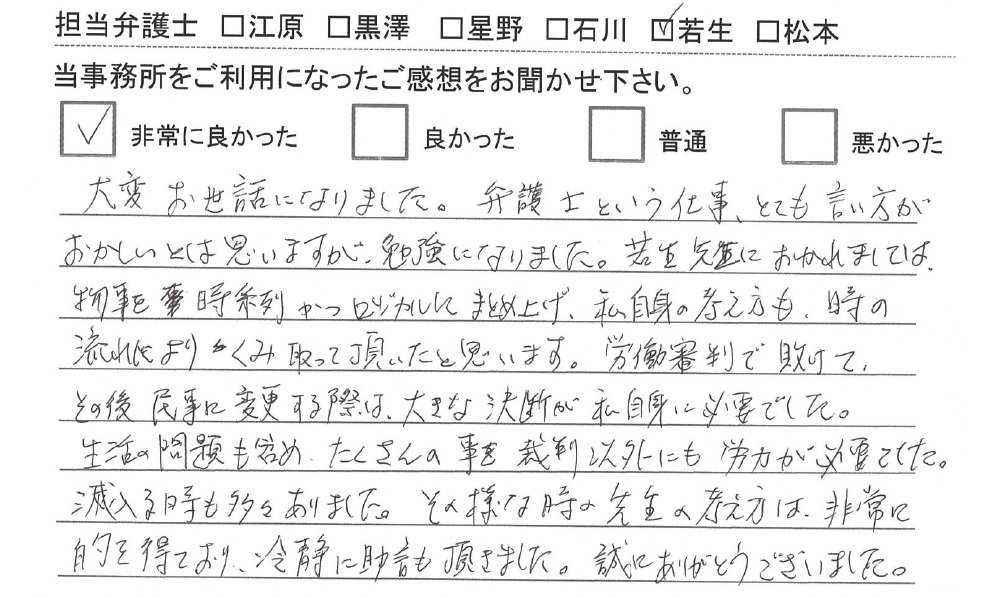 担当弁護士 □江原 □黒澤 □星野 □石川 ☑若生 □松本
当事務所をご利用になったご感想をお聞かせ下さい。
☑ 非常に良かった □ 良かった □ 普通 □ 悪かった
大変お世話になりました。弁護士という仕事、とても言い方が
おかしいとは思いますが、勉強になりました。若生先生におかれましては、
物事を時系列かつロジカルにまとめ上げ、私自身の考え方も、時の
流れにより くみ取って頂いたと思います。労働審判で敗けて、
その後民事に変更する際は、大きな決断が私自身に必要でした。
生活の問題も含め、たくさんの事を裁判以外にも労力が必要でした。
滅入る時も多々ありました。その様な時の先生の考え方は、非常に
的を得ており、冷静に助言も頂きました。誠にありがとうございました。